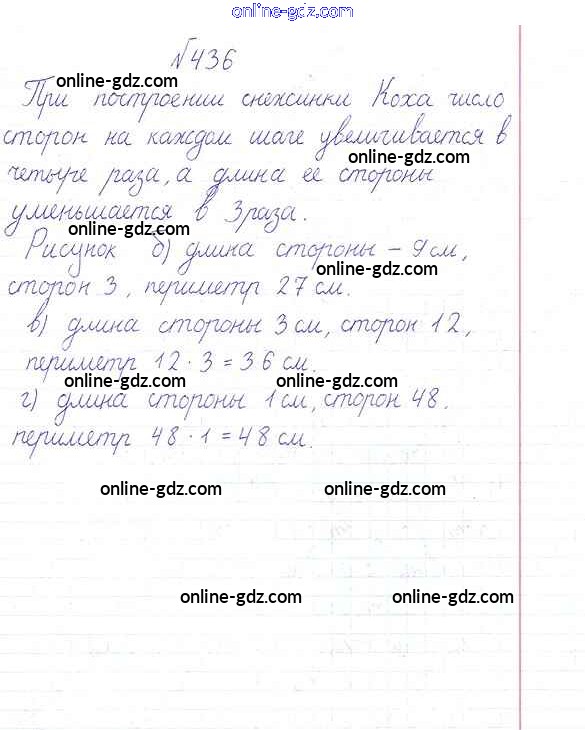 online-gdz.com
№436
online-gdz.com
При построении снежинки Коха число
сторон на каждом шаге увеличивается в
online-gdz.com
четыре раза, а длина ее стороны
уменьшается в 3 раза.
Рисунок б) длина стороны – 9 см,
online-gdz.com
сторон 3, периметр 27 см.
в) длина стороны 3 см, сторон 12,
периметр 12 · 3 = 36 см.
online-gdz.com online-gdz.com
г) длина стороны 1 см, сторон 48.
периметр 48 · 1 = 48 см.
online-gdz.com online-gdz.com
online-gdz.com online-gdz.com